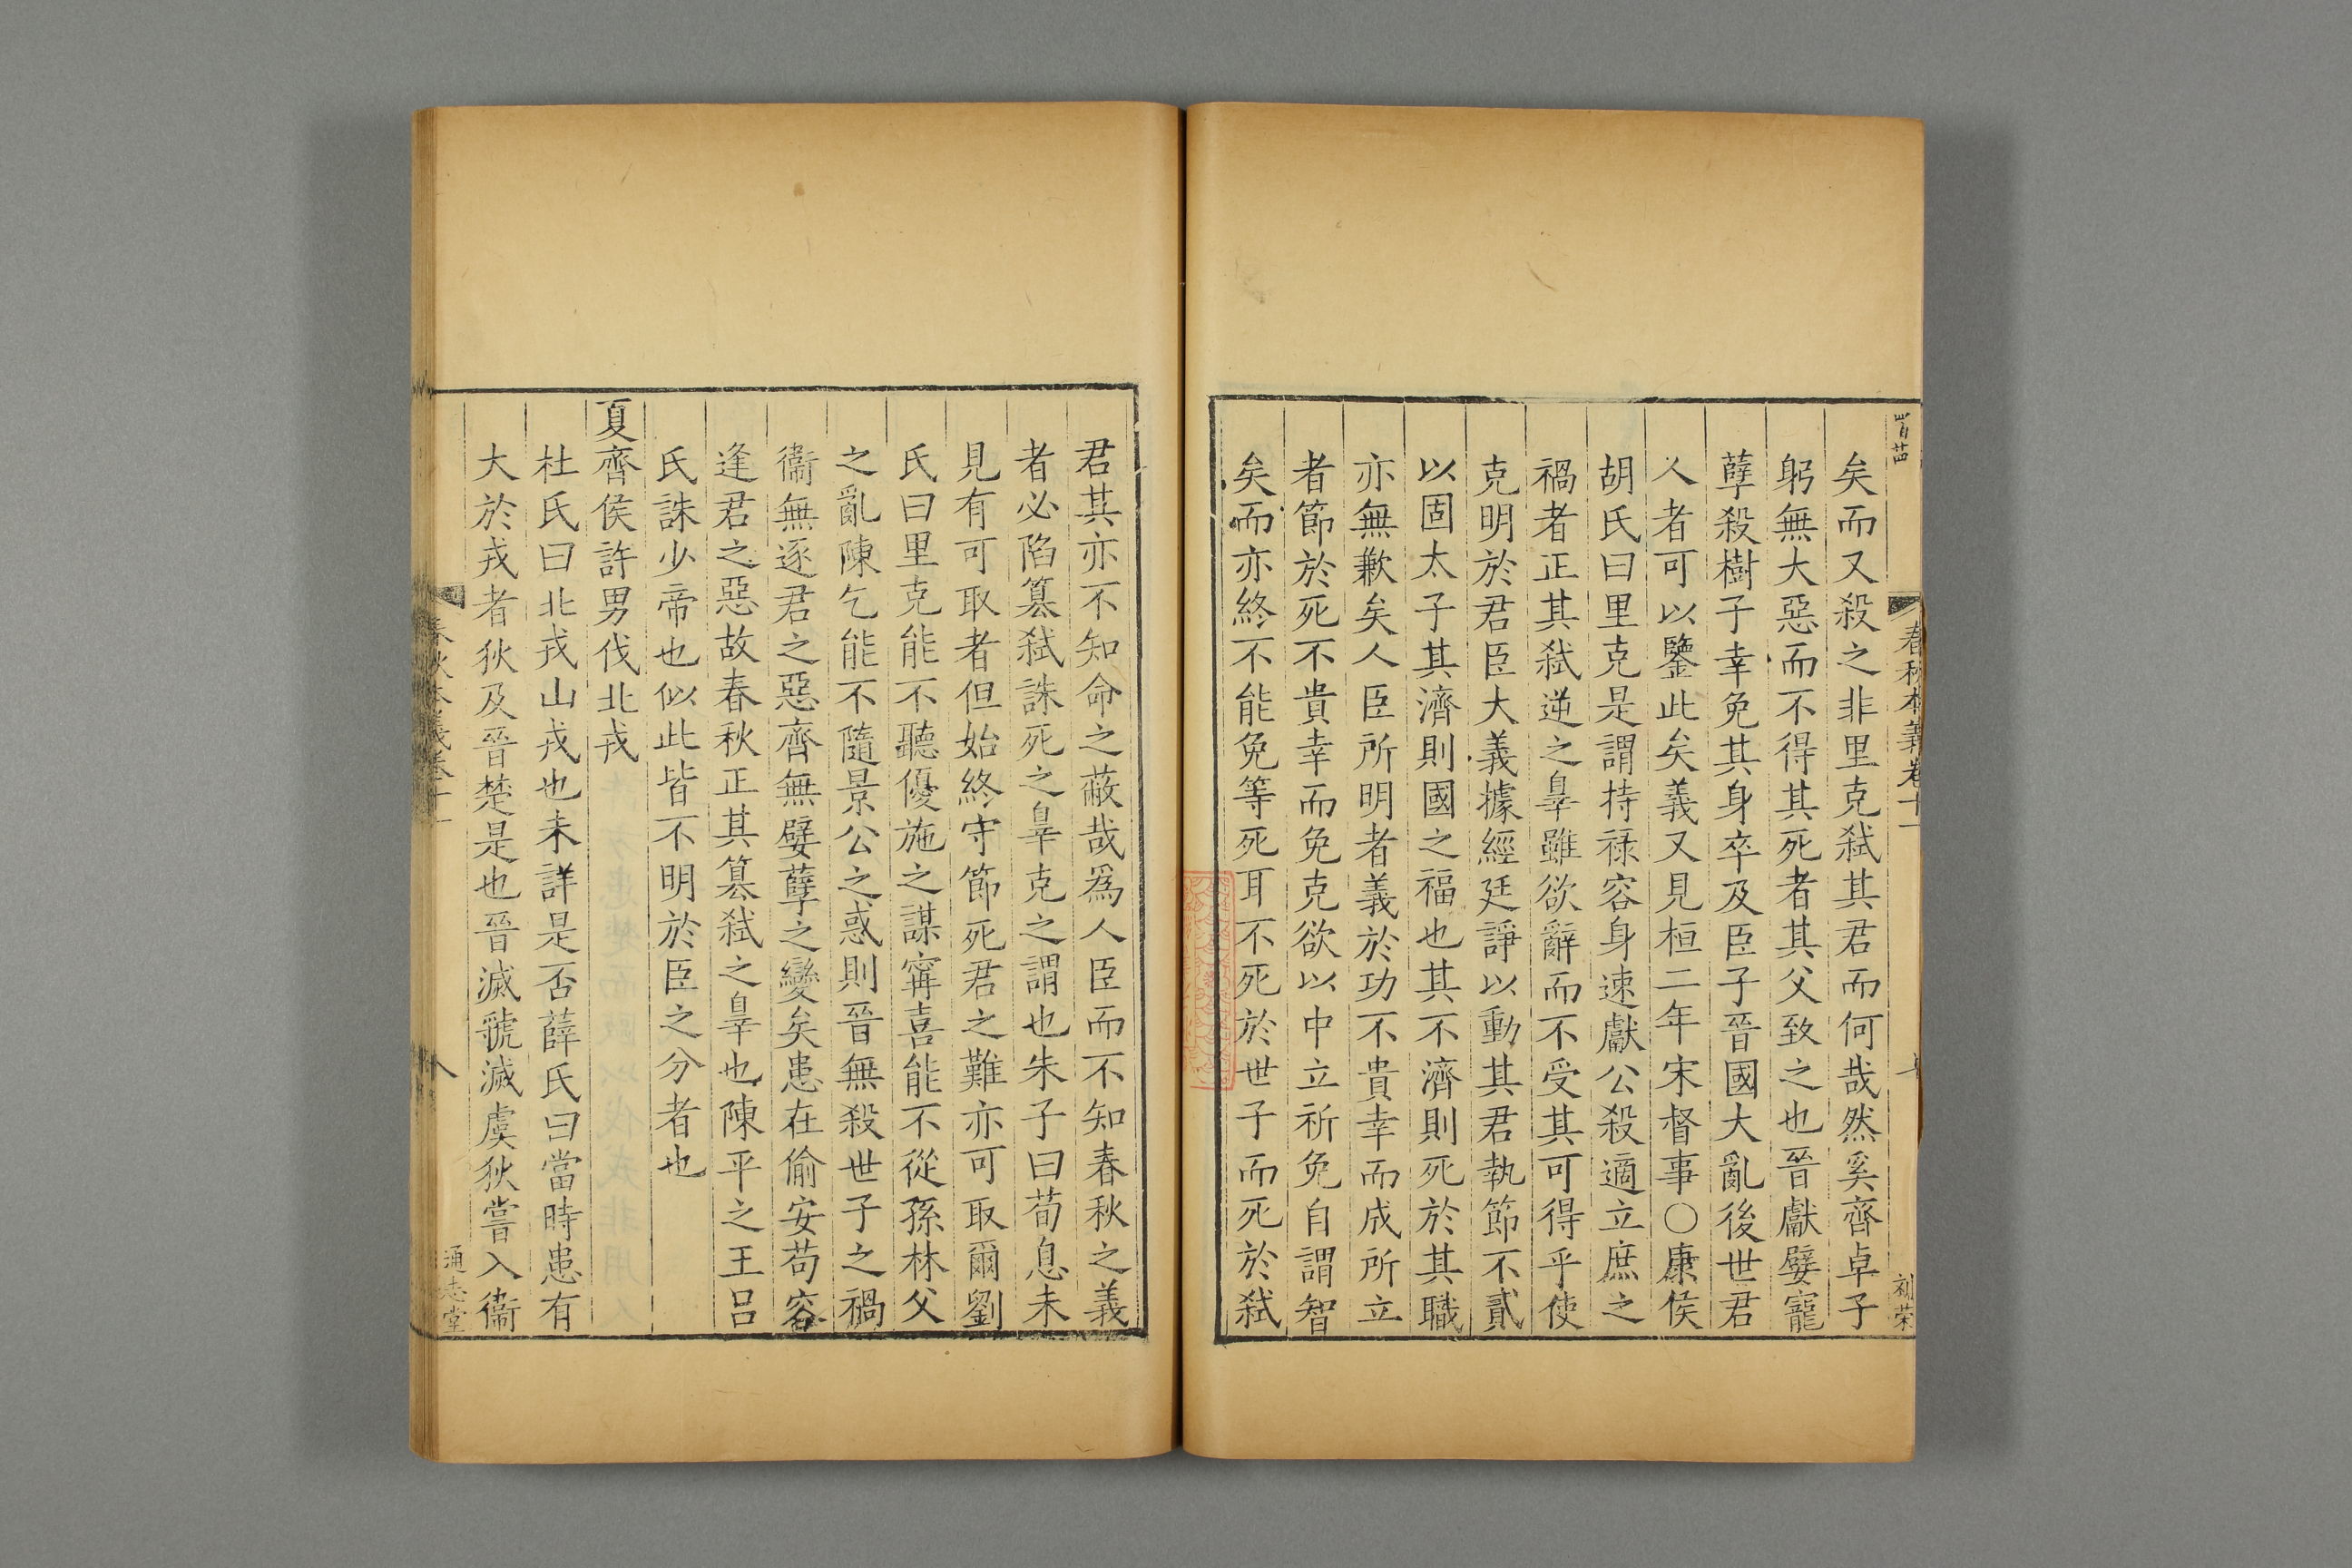 春秋本義卷十一
矣而又殺之非里克弑其君而何哉然奚齊卓子
躬無大惡而不得其死者其父致之也晉獻嬖寵
孽殺樹子幸免其身卒及臣子晉國大亂後世君
人者可以鑒此矣義又見桓二年宋督事○康侯
胡氏曰里克是謂持祿容身速獻公殺適立庶之
禍者正其弑逆之辠雖欲辭而不受其可得乎使
克明於君臣大義據經廷諍以動其君執節不貳
以固太子其濟則國之福也其不濟則死於其職
亦無歉矣人臣所明者義於功不貴幸而成所立
者節於死不貴幸而免克欲以中立祈免自謂智
矣而亦終不能免等死耳不死於世子而死於弑
君其亦不知命之蔽哉爲人臣而不知春秋之義
者必陷篡弑誅死之辠克之謂也朱子曰荀息未
見有可取者但始終守節死君之難亦可取爾劉
氏曰里克能不聽優施之謀甯喜能不從孫林父
之亂陳乞能不隨景公之惑則晉無殺世子之禍
衞無逐君之惡齊無嬖孽之變矣患在偷安苟容
逢君之惡故春秋正其篡弑之辠也陳平之王吕
氏誅少帝也似此皆不明於臣之分者也
夏齊侯許男伐北戎
杜氏曰北戎山戎也未詳是否薛氏曰當時患有
大於戎者狄及晉楚是也晉滅虢滅虞狄嘗入衞
春秋本義卷十一
八
通志堂